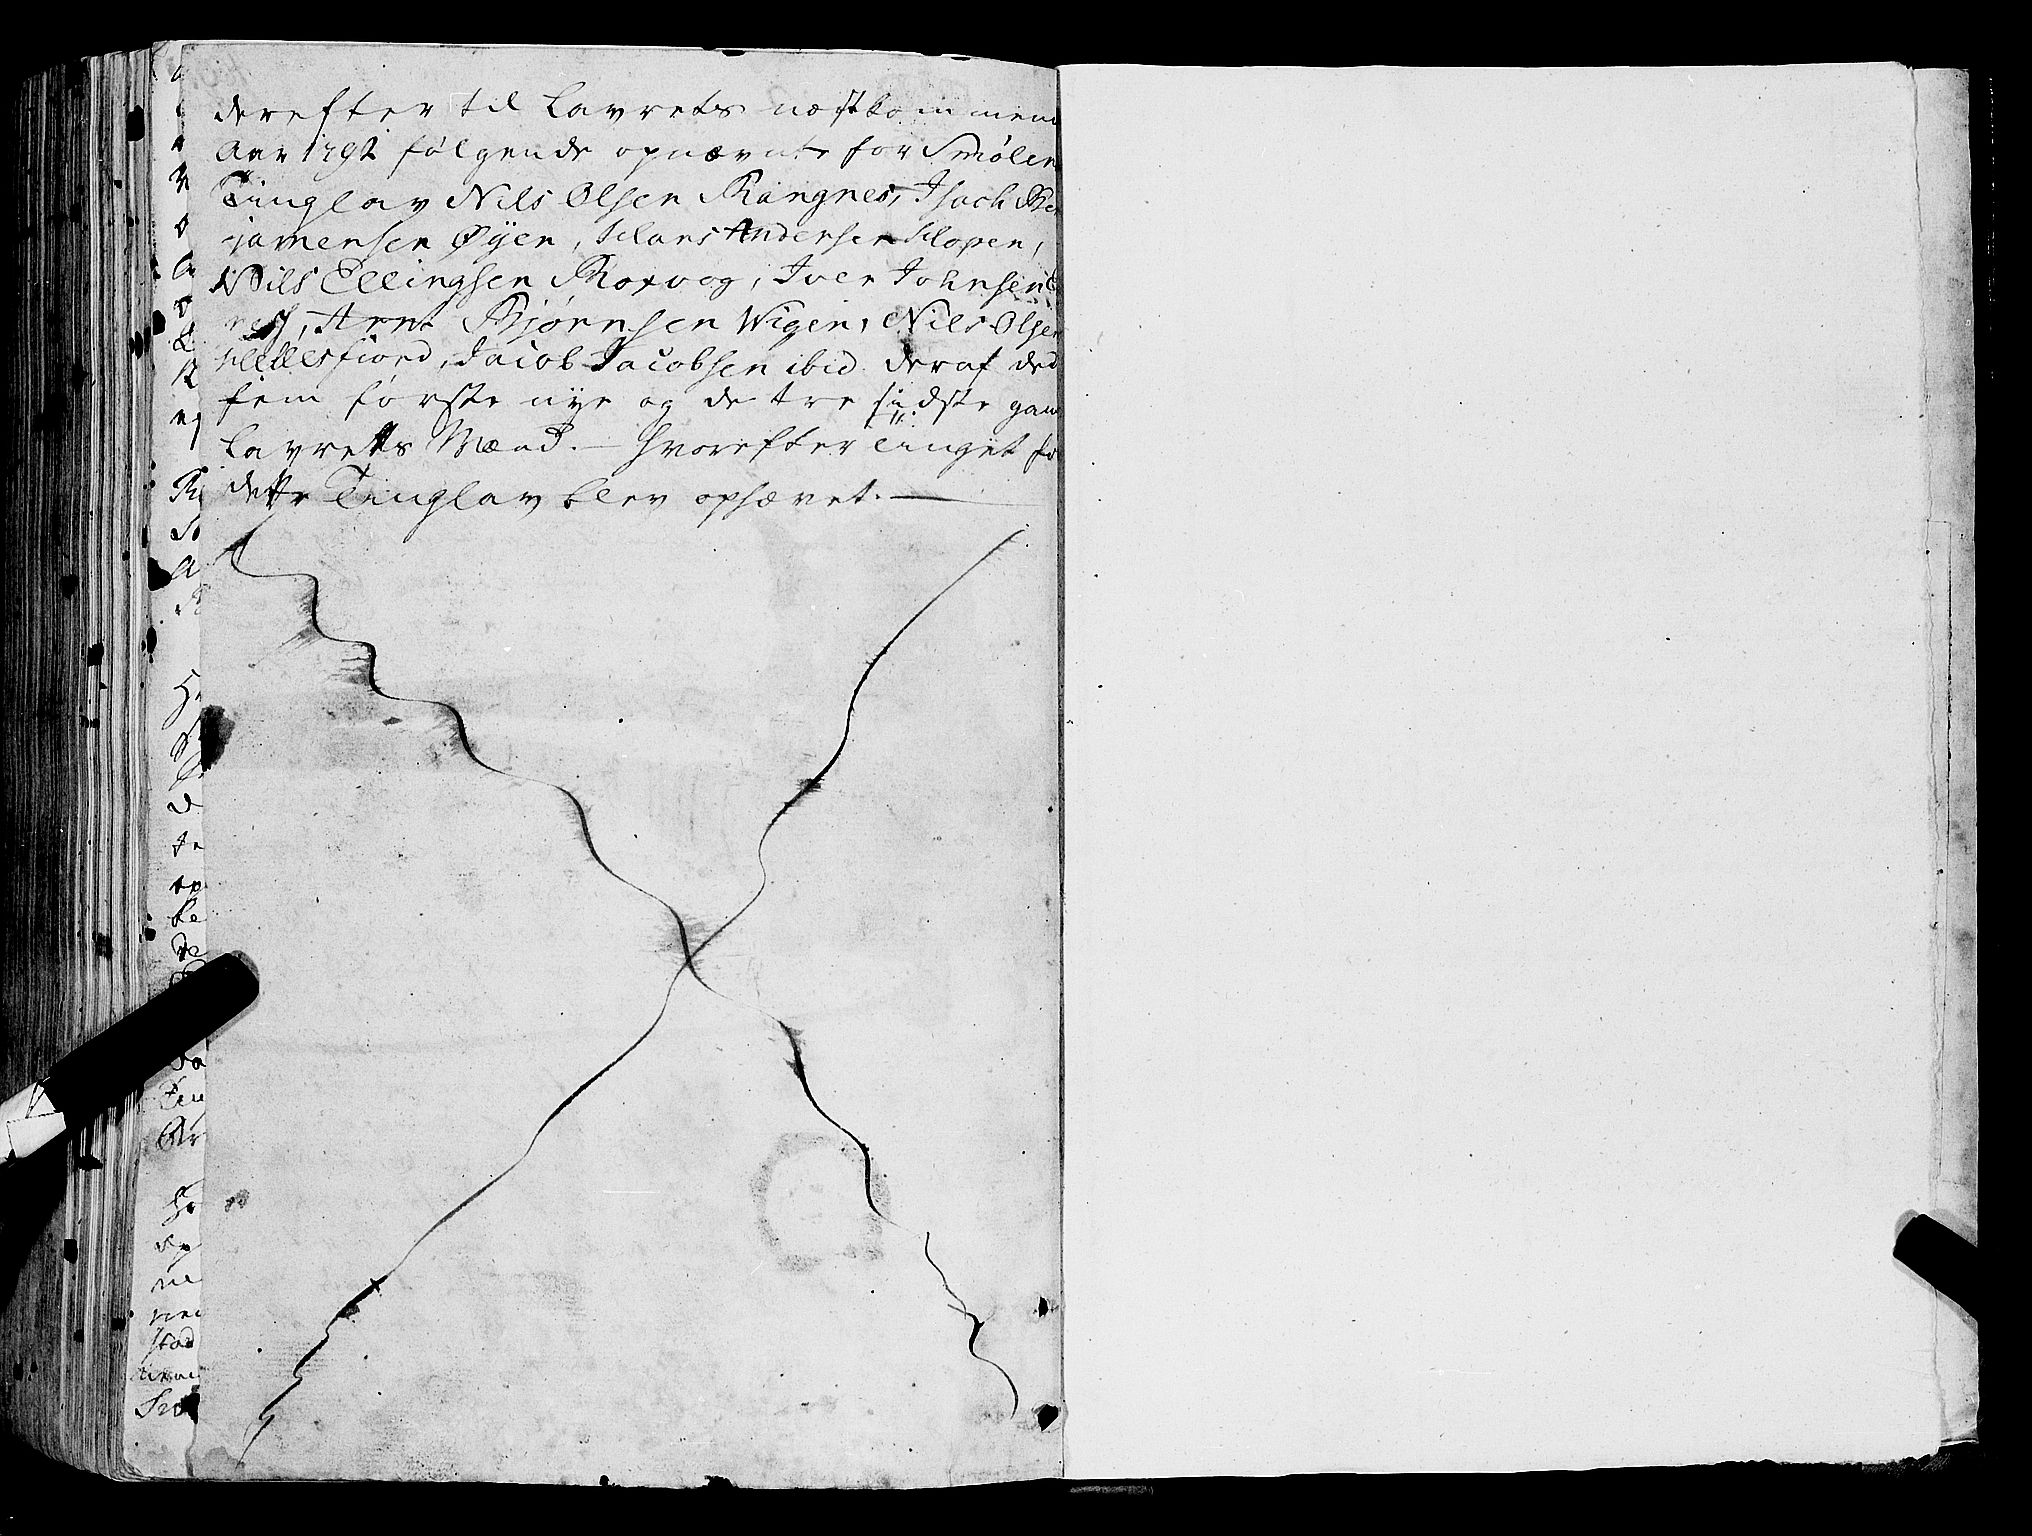 derefter til Lavrets næstkommen
Aar 1792 følgende opnævnte for Smölen
Tinglav Nils Olsen Rangnes, Isach Ben
jamensen Øyen, Hans Andersen Hopen,
Nils Ellingsen Roxvog, Iver Johnsen
nes, Arnt Bjørnsen Wigen, Nils Olsen
Hellesfiord, Jacob Jacobsen ibid deraf de
fem første nye og de tre sidste gam
Lavretts Mænd. – Hvorefter Tinget for
dette Tinglav blev ophævet. –